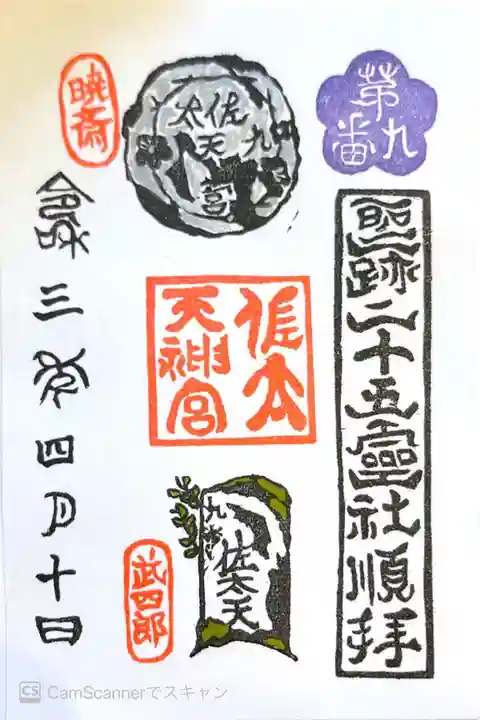 第九番
聖跡二十五霊社順拝
佐太天宮
九
佐太
天神宮
九番
佐太天
暁斎
武四郎
令和三年四月十日
CS CamScannerでスキャン